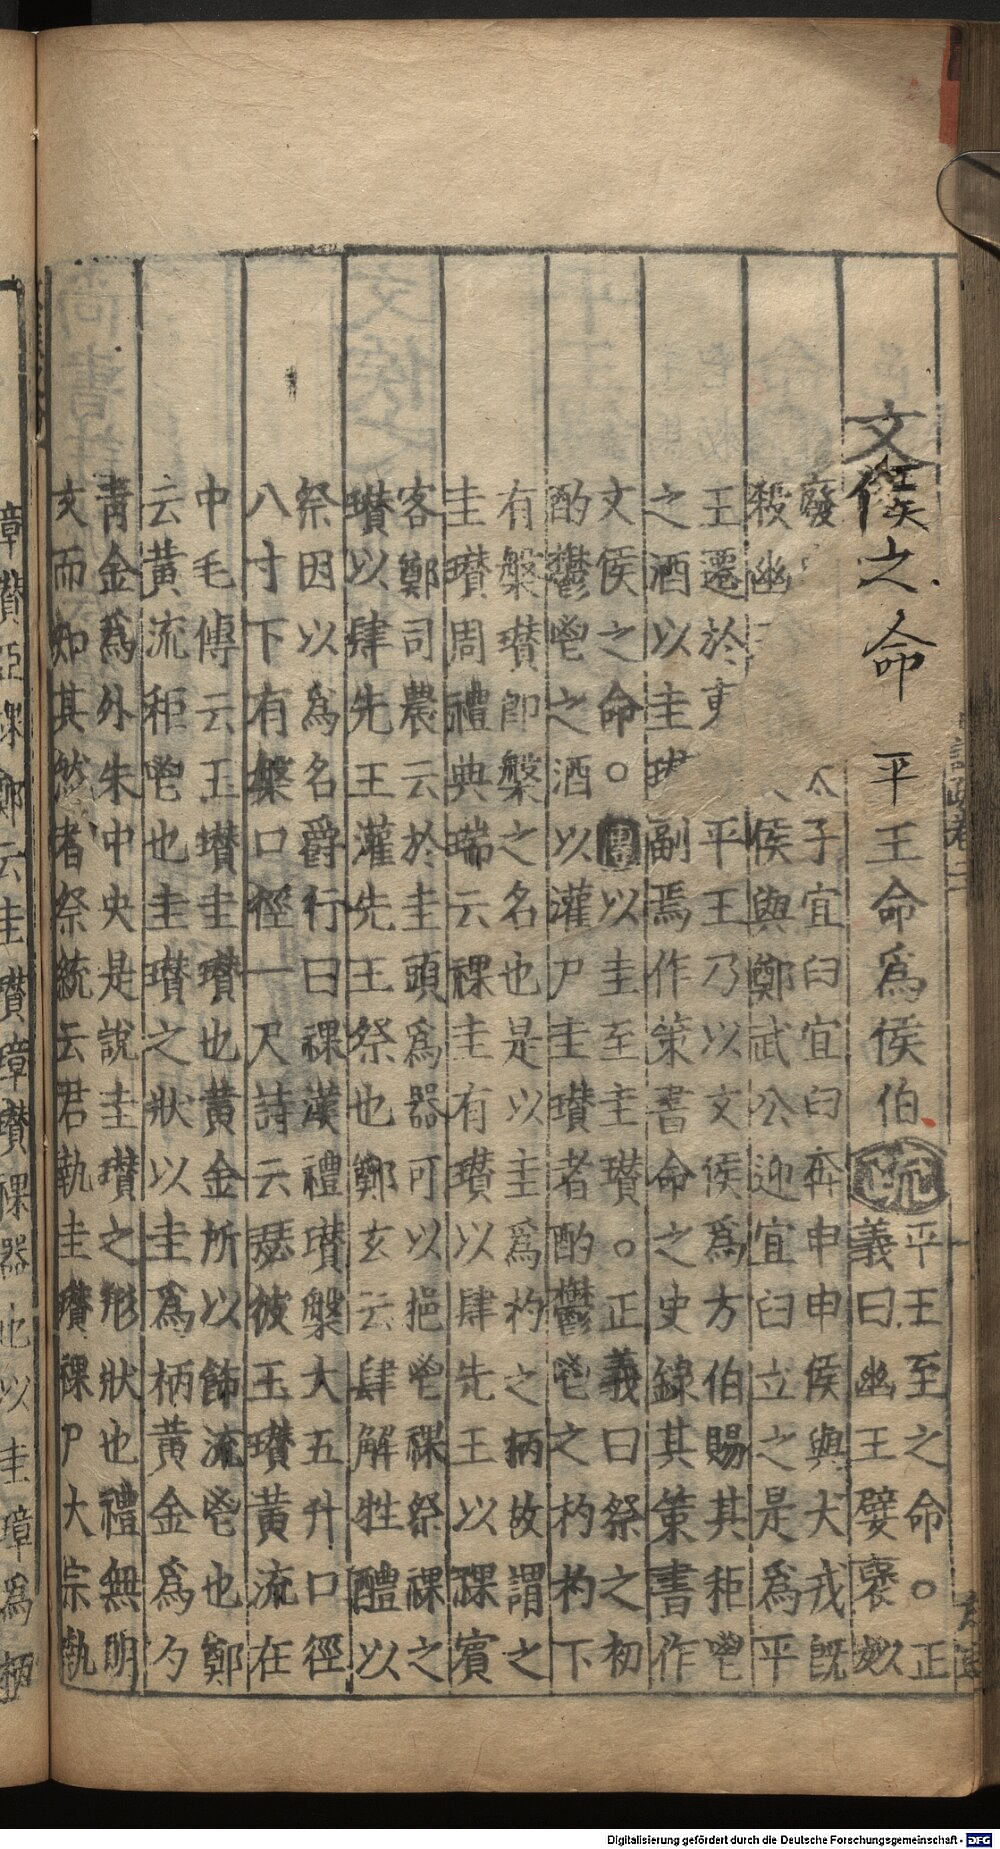 文侯之命 平王命爲侯伯 疏 平王至之命○正
義曰幽王嬖褒姒
廢 太子宜臼宜臼奔申申侯與犬戎既
殺幽 侯與鄭武公迎宜臼立之是爲平
王遷於東 平王乃以文侯爲方伯賜其秬鬯
之酒以圭瓚副焉作策書命之史錄其策書作
文侯之命○傳以圭至圭瓚○正義曰祭之初
酌鬱鬯之酒以灌尸圭瓚者酌鬱鬯之杓杓下
有槃瓚即槃之名也是以圭爲杓之柄故謂之
圭瓚周禮典瑞云祼圭有瓚以肆先王以祼賓
客鄭司農云於圭頭爲器可以挹鬯祼祭祼之
瓚以肆先王灌先王祭也鄭玄云肆解牲醴以
祭因以爲名爵行曰祼漢禮瓚槃大五升口徑
八寸下有槃口徑一尺詩云瑟彼玉瓚黃流在
中毛傳云玉瓚圭瓚也黃金所以飾流鬯也鄭
云黃流秬鬯也圭瓚之狀以圭爲柄黃金爲勺
青金爲外朱中央是說圭瓚之形狀也禮無明
文而知其然者祭統云君執圭瓚祼尸大宗執
璋瓚亞祼鄭云圭瓚璋瓚祼器也以圭璋爲柄
Digitalisierung gefördert durch die Deutsche Forschungsgemeinschaft - DFG